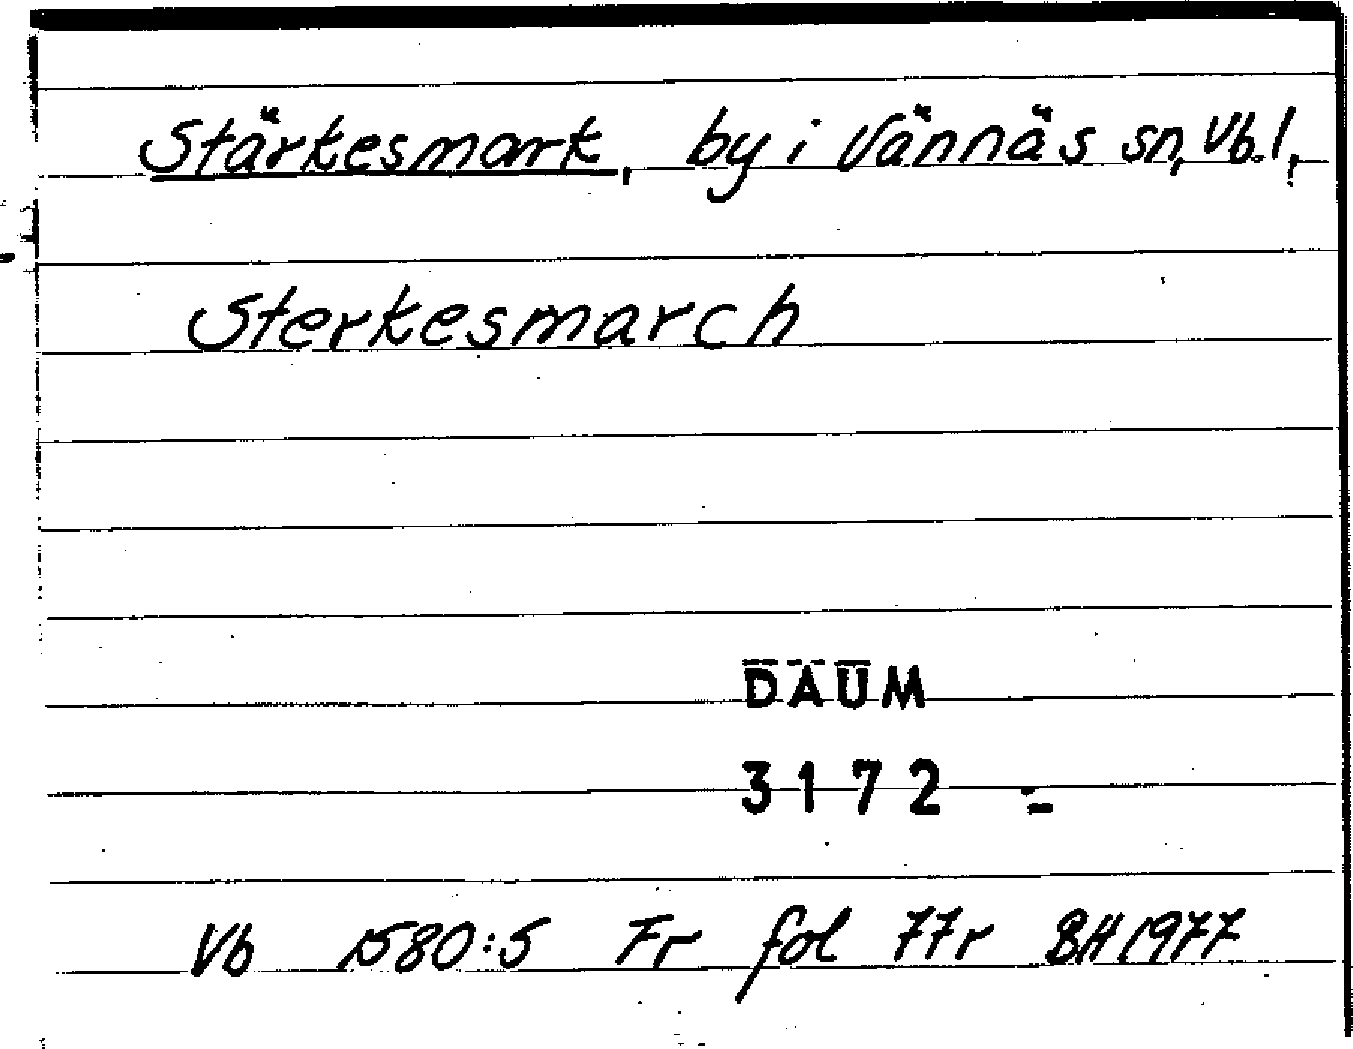 Stärkesmark, by i Vännäs sn, Vb.l,
Sterkesmarch
DAUM
3172 :-
Vb 1580:5 Fr fol 77r BH 1977